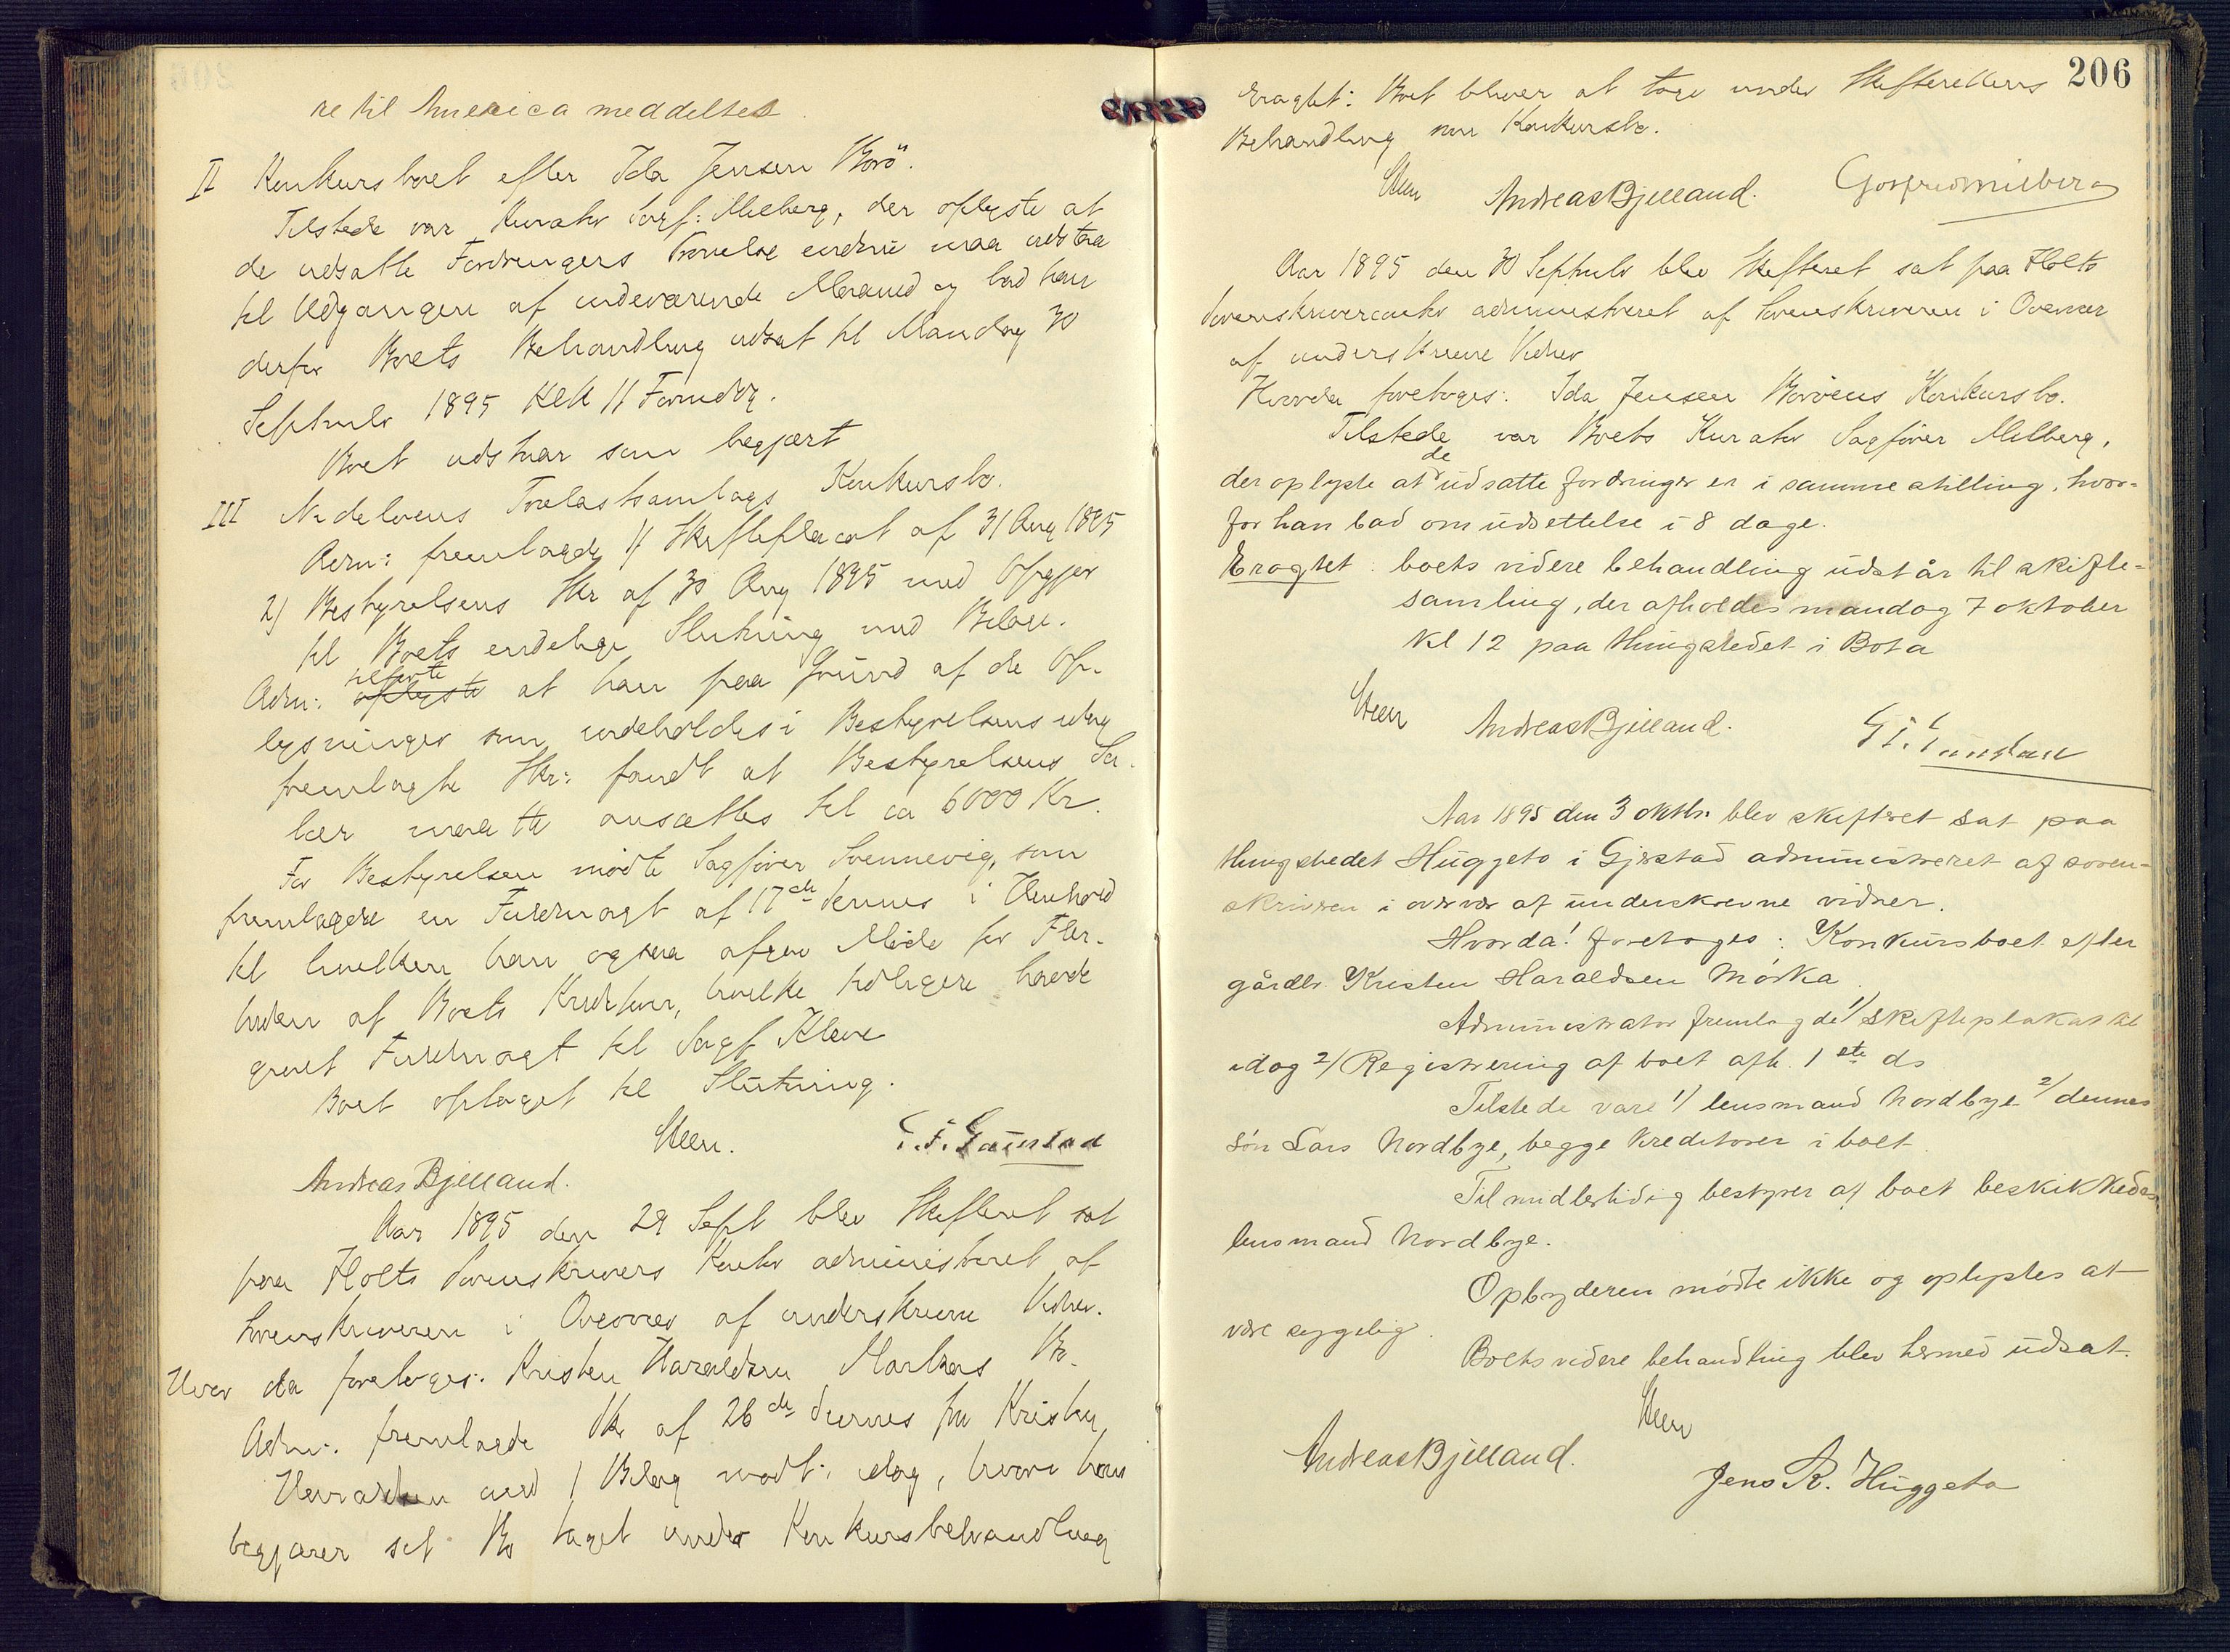 re til America meddeltes
II Konkursboet efter Ida Jensen Borø.
Tilstede var Kurator Sagf: Milberg, der oplyste at
de udsatte Fordringers Prøvelse endnu maa udstaa
til Udgangen af indeværende Maaned og bad han
derfor Boets Behandling udsat til Mandag 30
Septembr 1895 Klk 11 Formdg.
Boet udstaar som begjært
III Nedelvens Trælastsamlags Konkursbo.
Adm: fremlagde 1) Skifteplacat af 31 Aug 1895
2) Bestyrelsens Skr af 30 Aug 1895 med Opgjør
til Boets endelige Slutning med Bilage.
tilførte
Adm: oplyste at han paa Grund af de Op-
lysninger som indeholdes i Bestyrelsens idag
fremlagte Skr: fandt at Bestyrelsens Sa-
lær maatte ansættes til ca 6000 Kr.
For Bestyrelsen mødte Sagfører Svennevig, som
fremlagde en Fuldmagt af 17de dennes i Henhold
til hvilken han ogsaa afgav Møde for Fler-
heden af Boets Kreditorer, hvilke tidligere havde
givet Fuldmagt til Sagf Kleve
Boet optaget til Slutning.
Steen. G. F. Gunstad
Andreas Bjelland.
Aar 1895 den 29 Sept blev Skifteret sat
paa Holts Sorenskrivers Kontor administreret af
Sorenskriveren i Overvær af underskrevne Vidner.
Hvor da foretoges: Kristen Haraldsen Morkas Bo.
Adm: fremlagde Skr af 26de dennes fra Kristen
Haraldsen med 1 Bilag modt: idag, hvori han
begjærer sit Bo taget under Konkursbehandling
206
Eragtet: Boet bliver at tage under Skifterettens
Behandling som Konkursbo.
Steen Andreas Bjelland. Gotfred Milberg
Aar 1895 den 30 Septembr blev Skifteret sat paa Holts
Sorenskrivercontor administreret af Sorenskriveren i Overvær
af underskrevne Vidner
Hvorda foretoges: Ida Jensen Borøens Konkursbo.
Tilstede var Boets Kurator Sagfører Milberg,
de
der oplyste at udsatte fordringer er i samme stilling, hvor-
for han bad om udsettelse i 8 dage.
Eragtet: boets videre behandling udstår til skifte-
samling, der afholdes mandag 7 oktober
kl 12 paa thingstedet i Bota
Steen Andreas Bjelland. G. F. Gunstad
Aar 1895 den 3 oktbr. blev skifteret sat paa
thingstedet Huggeto i Gjerstad administreret af soren-
skriveren i overvær af underskrevne vidner.
Hvorda! foretoges: Konkursboet efter
gårdbr. Kristen Haraldsen Mørka
Administrator fremlagde 1/ skifteplakat til
idag 2/ Registrering af boet afh. 1ste ds
Tilstede vare 1/ lensmand Nordbye 2/ dennes
søn Lars Nordbye, begge kreditorer i boet.
Til midlertidig bestyrer af boet beskikkedes
lensmand Nordbye.
Opbyderen mødte ikke og oplystes at
være sygelig.
Boets videre behandling blev hermed udsat.
Steen
Andreas Bjelland.
Jens R. Huggeto